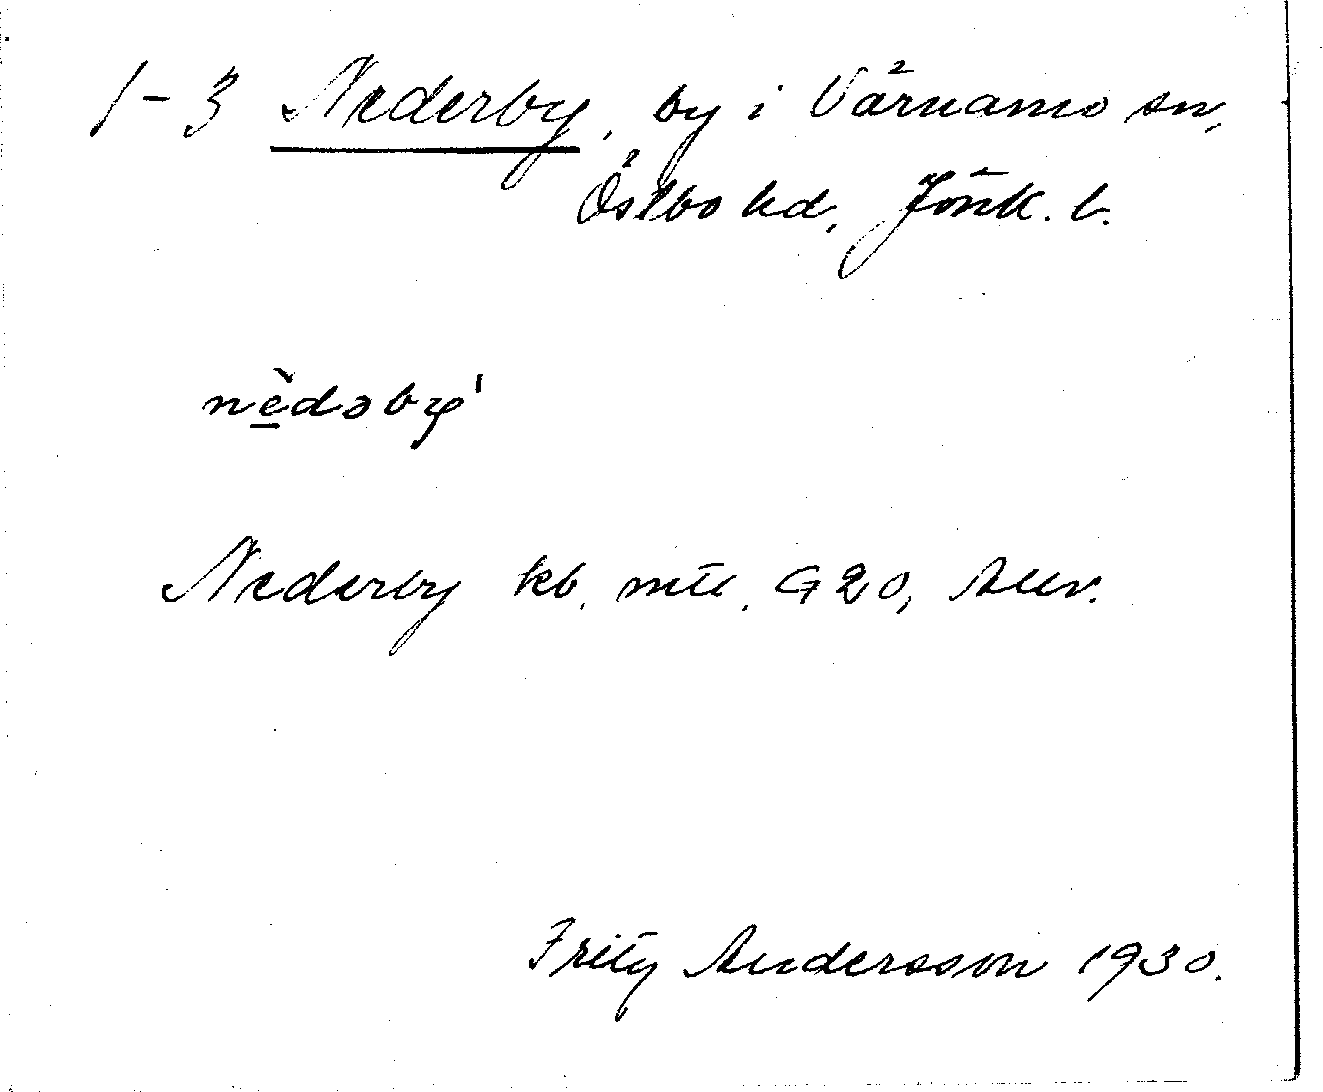 1-3 Nederby, by i Värnamo sn,
Östbo hd, Jönk. l.
nèdəby'
Nederby kb. mtl. G 20,
Fritz Andersson 1930.